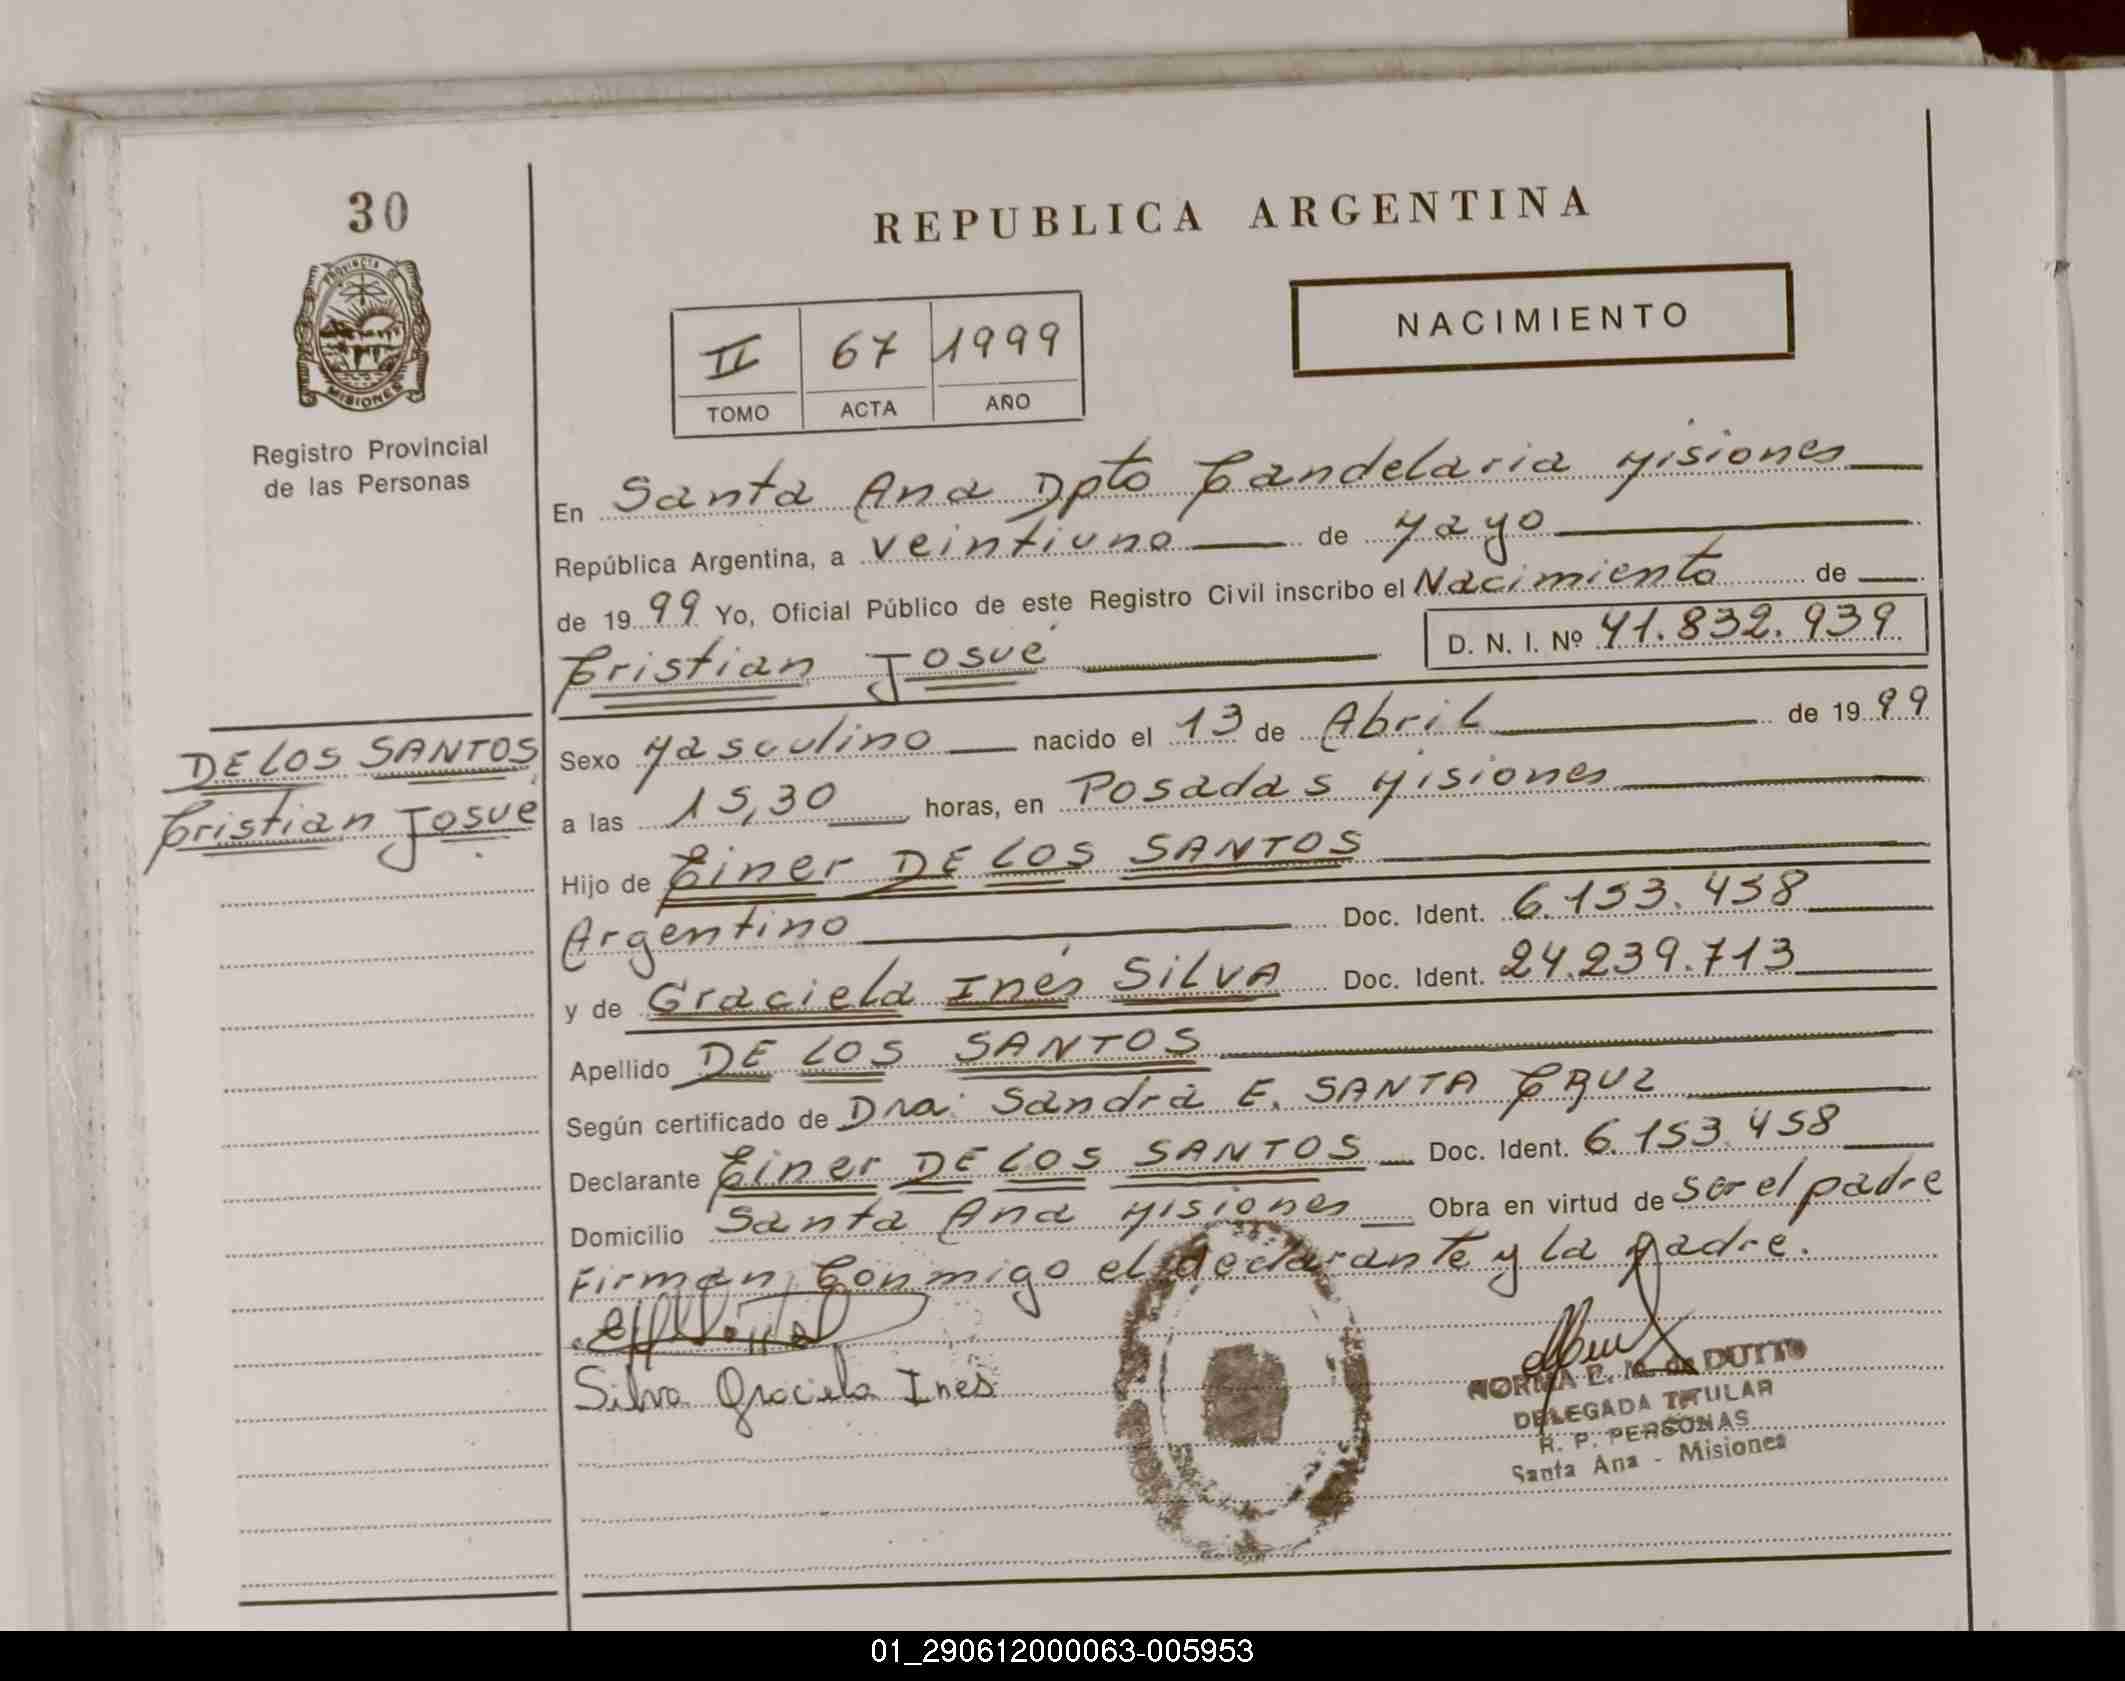 30
PROVINCIA DE
MISIONES
Registro Provincial
de las Personas
REPUBLICA ARGENTINA
II 67 1999
TOMO ACTA AÑO
NACIMIENTO
En Santa Ana Dpto Candelaria Misiones
República Argentina, a veintiuno de Mayo
de 1999 Yo, Oficial Público de este Registro Civil inscribo el Nacimiento de
Cristian Josué D. N. I. Nº 41.832.939
DE LOS SANTOS
Cristian Josué
Sexo Masculino nacido el 13 de Abril de 1999
a las 15,30 horas, en Posadas Misiones
Hijo de Einer DE LOS SANTOS
Argentino Doc. Ident. 6.153.458
y de Graciela Inés SILVA Doc. Ident. 24.239.713
Apellido DE LOS SANTOS
Según certificado de Dra. Sandra E. SANTA CRUZ
Declarante Einer DE LOS SANTOS Doc. Ident. 6.153.458
Domicilio Santa Ana Misiones Obra en virtud de ser el padre
Firman Conmigo el declarante y la Madre.
Silva Graciela Ines
NORMA E. M. de DUTTO
DELEGADA TITULAR
R. P. PERSONAS
Santa Ana - Misiones
01_290612000063-005953